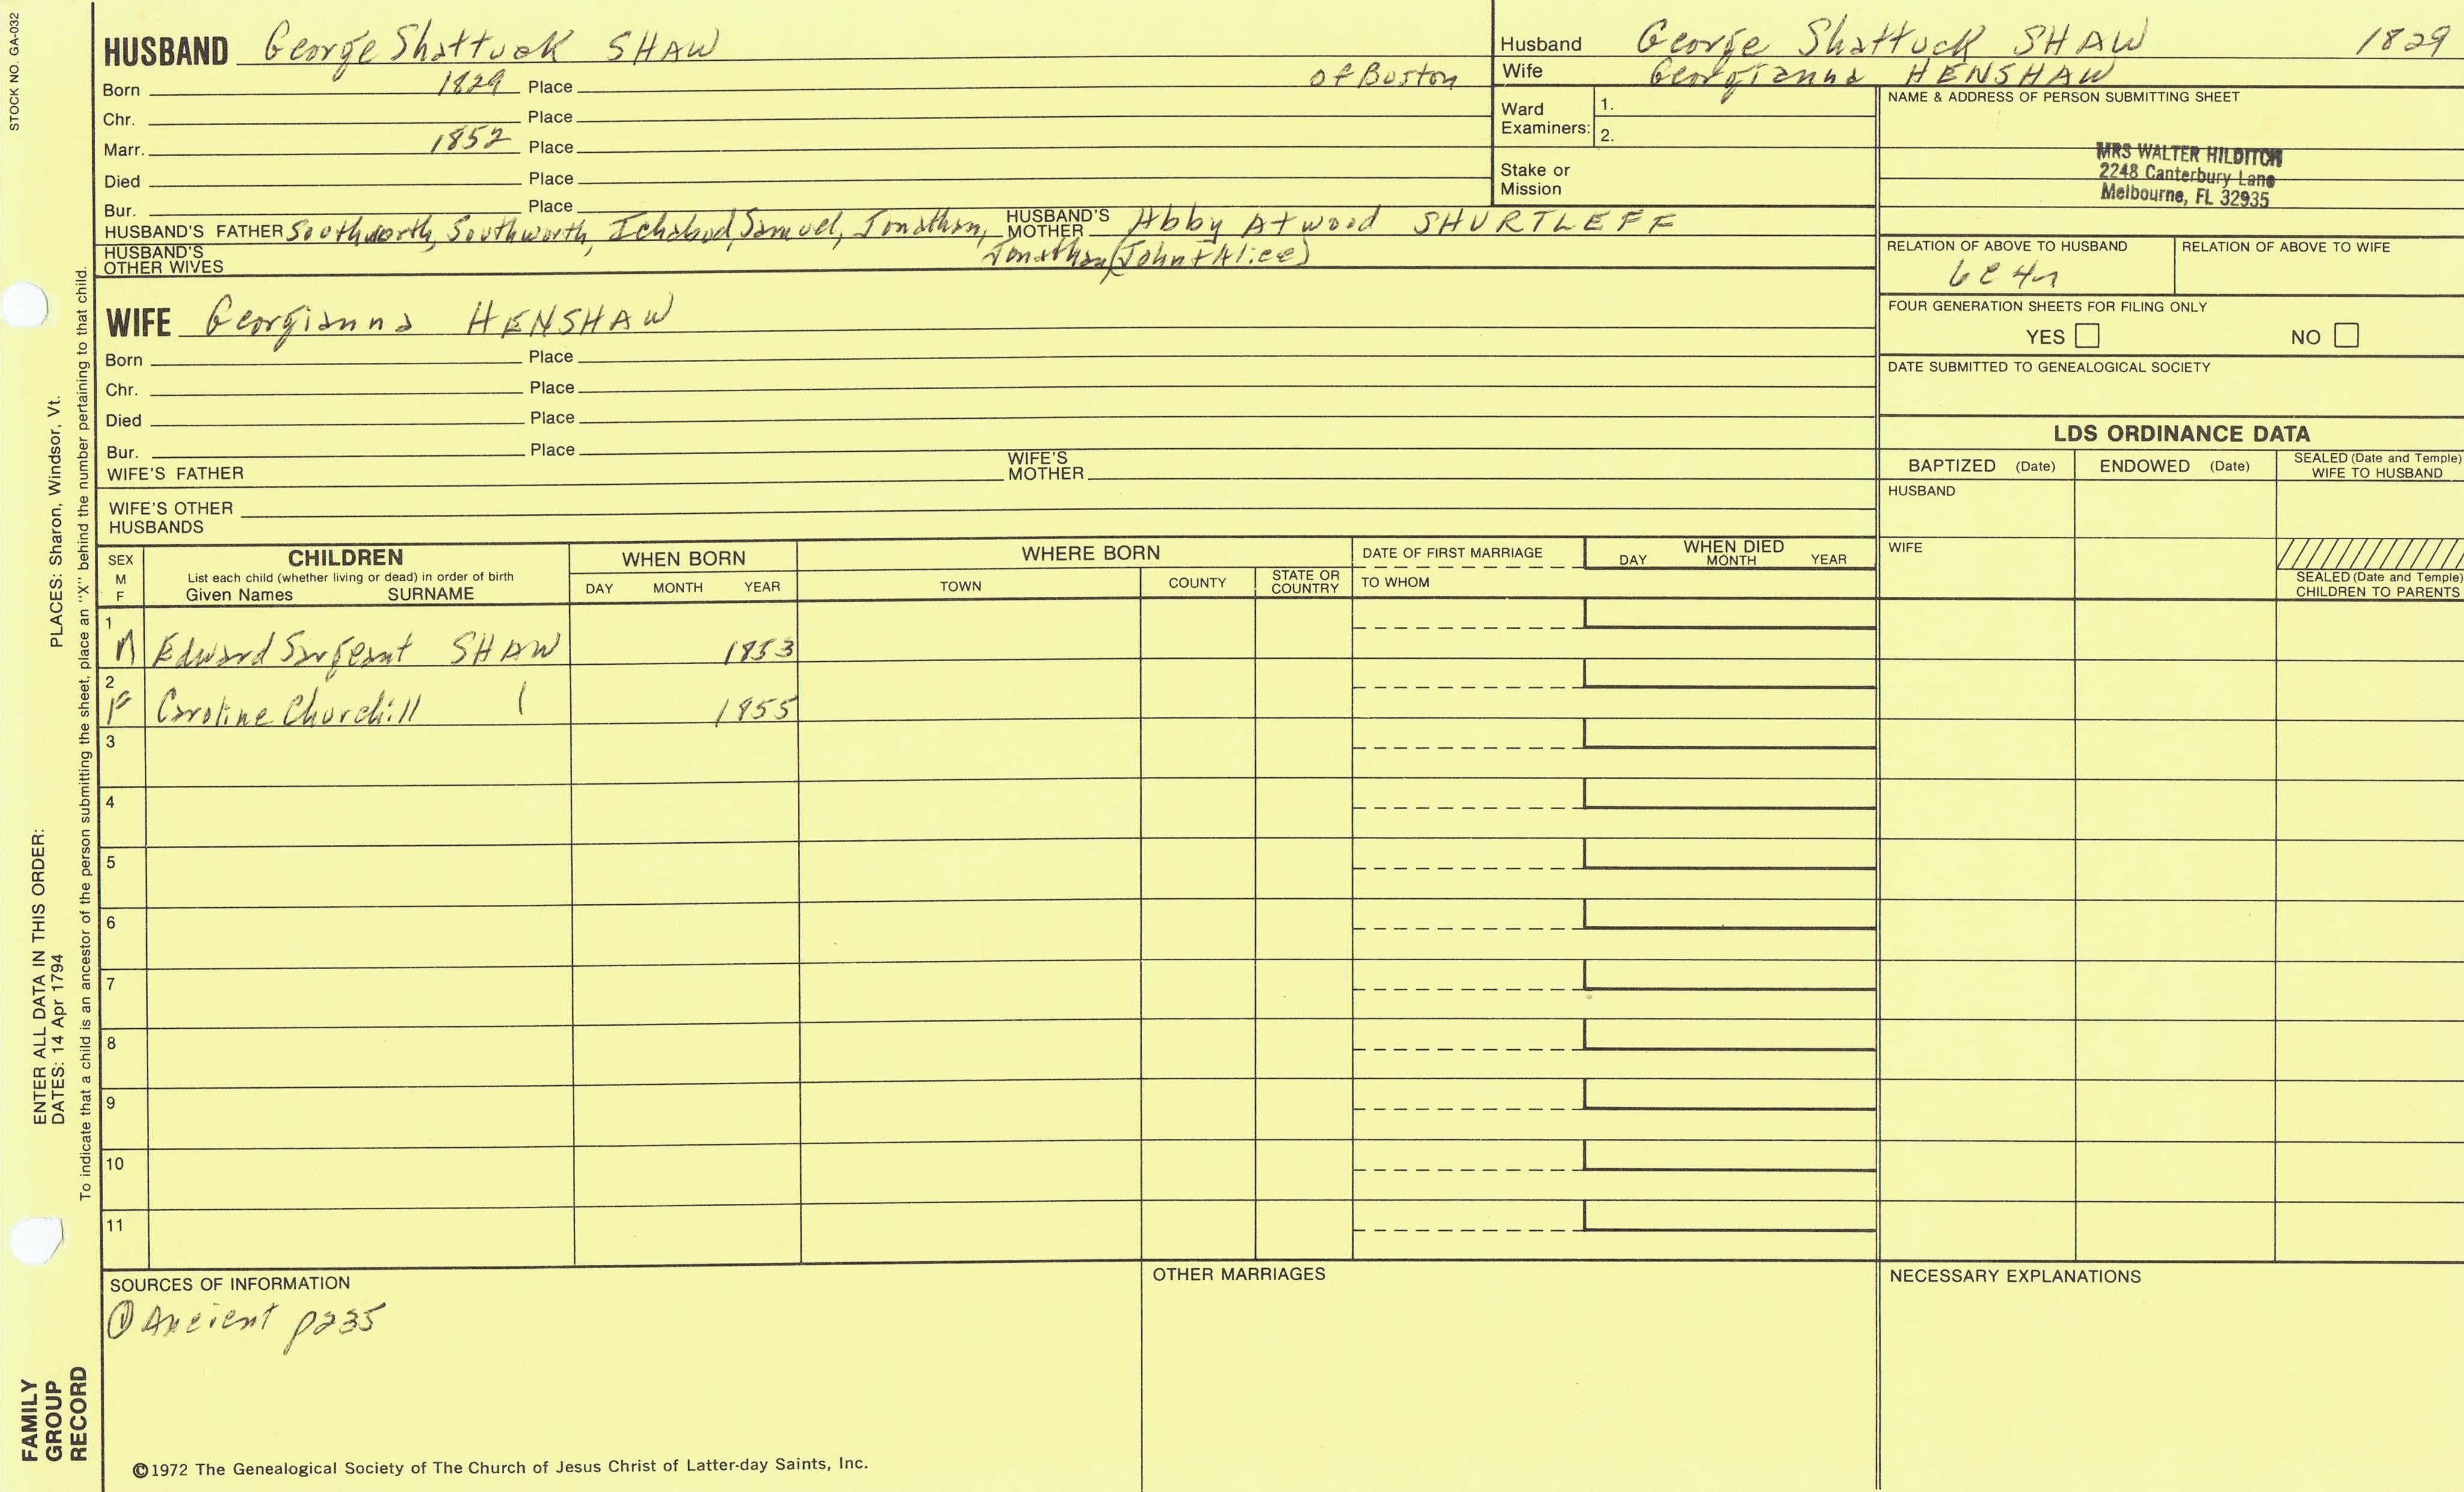 STOCK NO. GA-032
HUSBAND George Shattuck SHAW
Born 1829 Place of Boston
Chr. Place
Marr. 1852 Place
Died Place
Bur. Place
HUSBAND'S FATHER Southworth, Southworth, Ichabod, Samuel, Jonathan, HUSBAND'S MOTHER Abby Atwood SHURTLEFF
HUSBAND'S OTHER WIVES Jonathan (John + Alice)
Husband George Shattuck SHAW 1829
Wife Georgianna HENSHAW
Ward Examiners: 1.
2.
Stake or Mission
NAME & ADDRESS OF PERSON SUBMITTING SHEET
MRS WALTER HILDITCH
2248 Canterbury Lane
Melbourne, FL 32935
RELATION OF ABOVE TO HUSBAND RELATION OF ABOVE TO WIFE
6c4r
FOUR GENERATION SHEETS FOR FILING ONLY
YES NO
DATE SUBMITTED TO GENEALOGICAL SOCIETY
WIFE Georgianna HENSHAW
Born Place
Chr. Place
Died Place
Bur. Place
WIFE'S FATHER WIFE'S MOTHER
WIFE'S OTHER HUSBANDS
LDS ORDINANCE DATA
BAPTIZED (Date) ENDOWED (Date) SEALED (Date and Temple) WIFE TO HUSBAND
HUSBAND
WIFE
SEALED (Date and Temple) CHILDREN TO PARENTS
SEX M F
CHILDREN
List each child (whether living or dead) in order of birth
Given Names SURNAME
WHEN BORN
DAY MONTH YEAR
WHERE BORN
TOWN COUNTY STATE OR COUNTRY
DATE OF FIRST MARRIAGE
TO WHOM
WHEN DIED
DAY MONTH YEAR
1 M Edward Sargeant SHAW 1853
2 F Caroline Churchill ( 1855
3
4
5
6
7
8
9
10
11
SOURCES OF INFORMATION
① Ancient p235
OTHER MARRIAGES
NECESSARY EXPLANATIONS
©1972 The Genealogical Society of The Church of Jesus Christ of Latter-day Saints, Inc.
ENTER ALL DATA IN THIS ORDER:
DATES: 14 Apr 1794 PLACES: Sharon, Windsor, Vt.
To indicate that a child is an ancestor of the person submitting the sheet, place an "X" behind the number pertaining to that child.
FAMILY
GROUP
RECORD